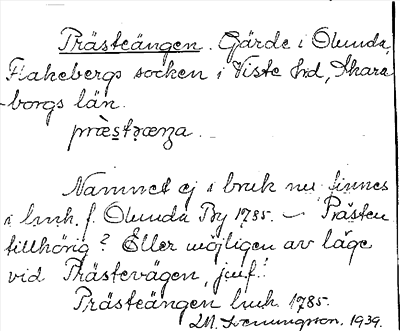 Prästeängen. Gärde i Olunda,
Flakebergs socken i Viste hd, Skara-
borgs län.
præstæŋa.
Namnet ej i bruk nu finnes
i lmk. f. Olunda By 1785. – Prästen
tillhörig? Eller möjligen av läge
vid Prästevägen, jmf.
Prästeängen lmk. 1785.
1939.